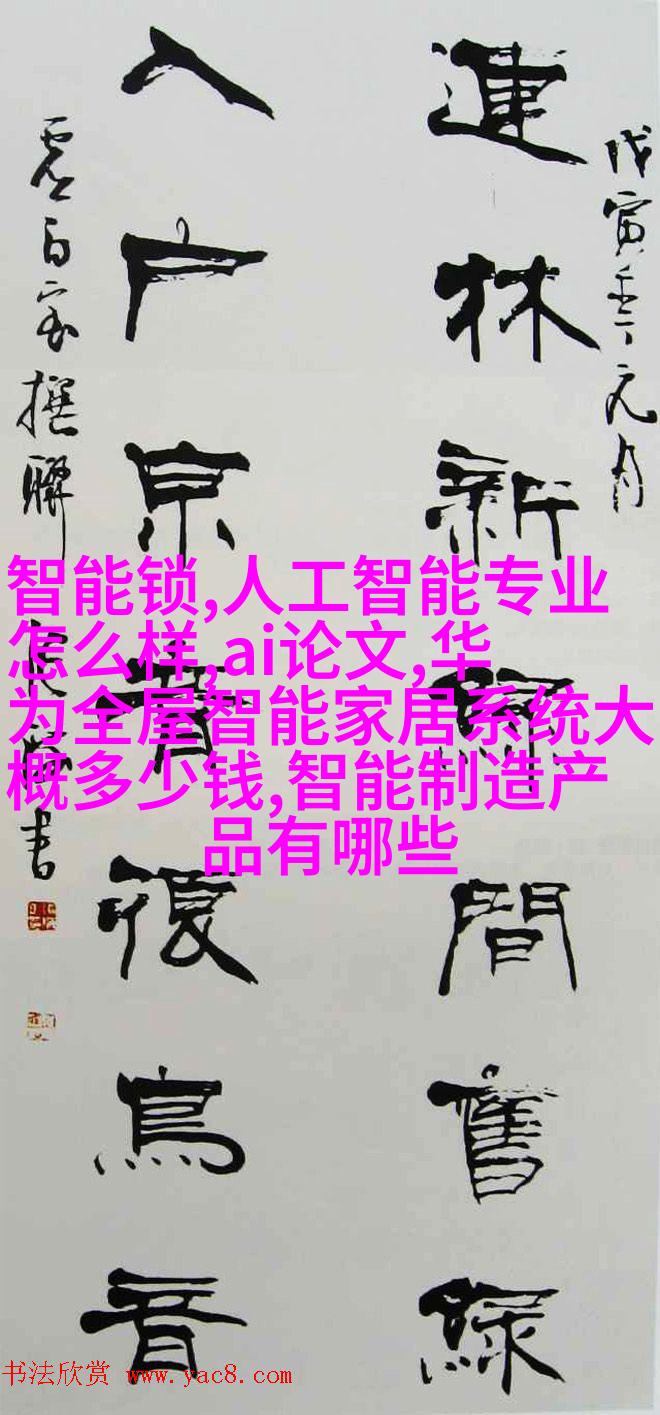 戊寅年元月
連林新綠間舊綠
入户京音鳥音
撰聯
書
智能锁,人工智能专业
怎么样,ai论文,华
为全屋智能家居系统大
概多少钱,智能制造产
品有哪些
书法欣赏 www.yac8.com